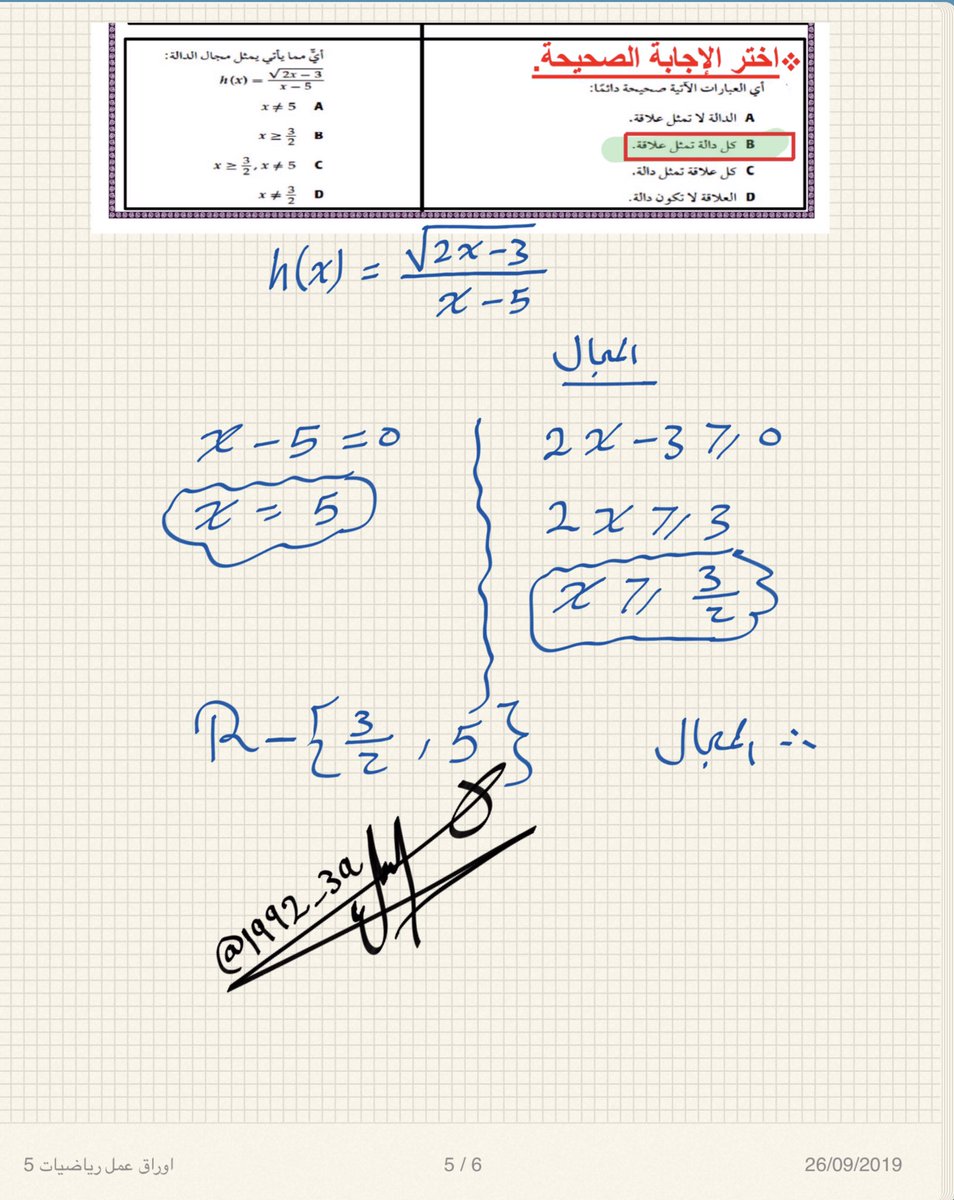 ❖اختر الإجابة الصحيحة.
أي العبارات الآتية صحيحة دائمًا:
A الدالة لا تمثل علاقة.
B كل دالة تمثل علاقة.
C كل علاقة تمثل دالة.
D العلاقة لا تكون دالة.
أيٌّ مما يأتي يمثل مجال الدالة:
h(x) = √(2x − 3) / (x − 5)
x ≠ 5 A
x ≥ 3/2 B
x ≥ 3/2, x ≠ 5 C
x ≠ 3/2 D
h(x) = √(2x-3) / (x-5)
المجال
2x-3 ≥ 0
2x ≥ 3
x ≥ 3/2
x-5=0
x = 5
∴ المجال R-{3/2, 5}
@1992_3a
26/09/2019
5 / 6
اوراق عمل رياضيات 5